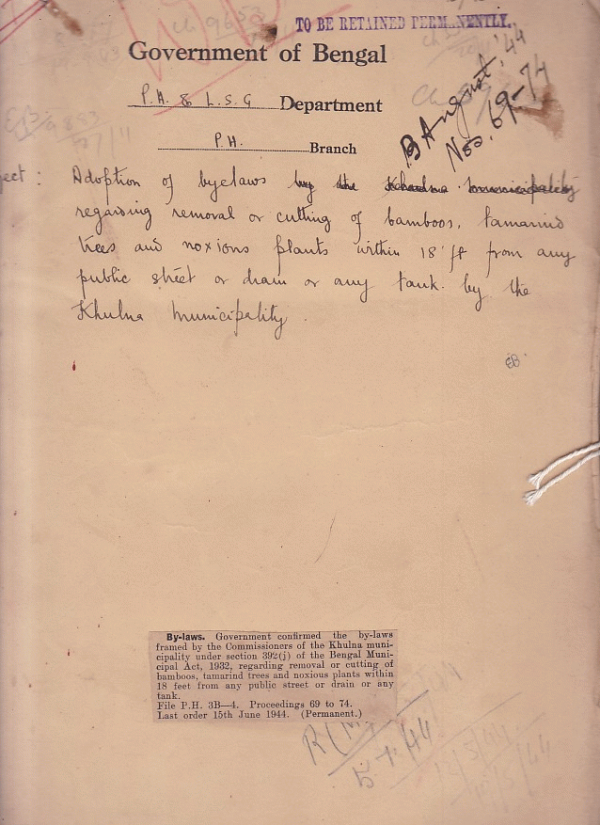 TO BE RETAINED PERMANENTLY.
Government of Bengal
P.H. & L.S.G Department
P.H. Branch
B August '44
Nos. 69-74
ject :
Adoption of byelaws by the Khulna Municipality
regarding removal or cutting of bamboos, tamarind
trees and noxious plants within 18 ft from any
public street or drain or any tank. by the
Khulna Municipality.
By-laws. Government confirmed the by-laws
framed by the Commissioners of the Khulna muni-
cipality under section 392(j) of the Bengal Muni-
cipal Act, 1932, regarding removal or cutting of
bamboos, tamarind trees and noxious plants within
18 feet from any public street or drain or any
tank.
File P.H. 3B—4. Proceedings 69 to 74.
Last order 15th June 1944. (Permanent.)